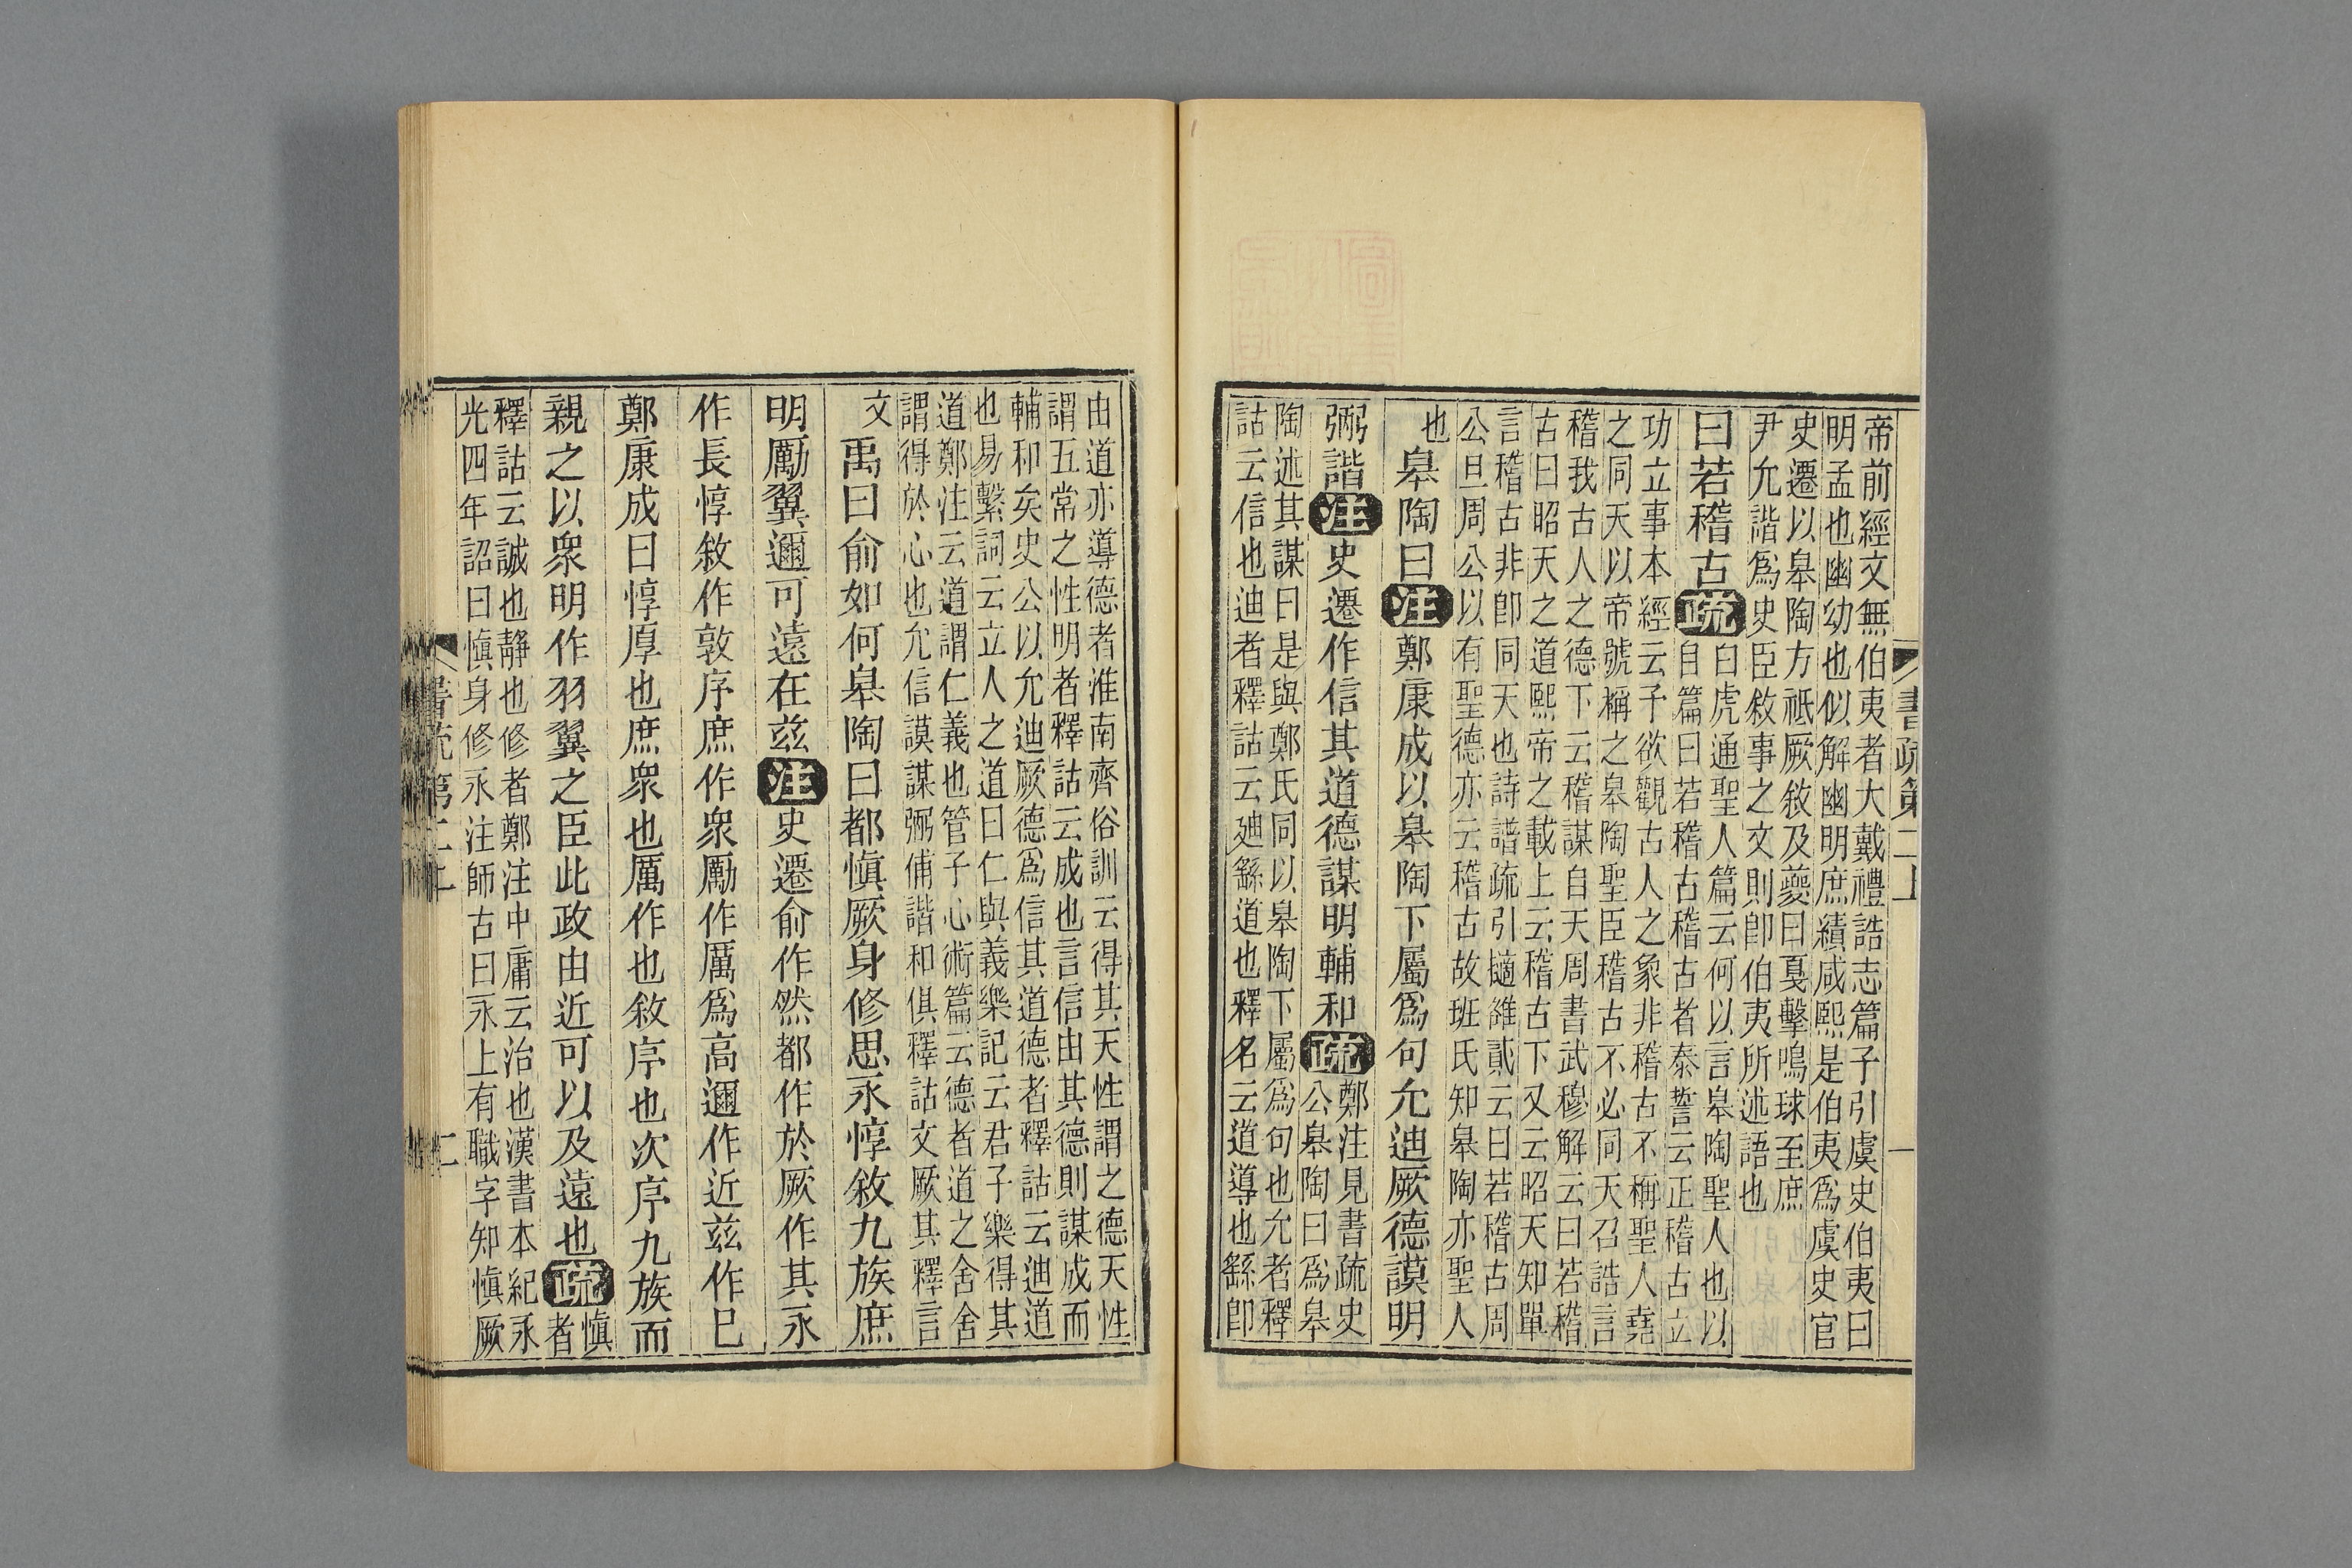 帝前經文無伯夷者大戴禮誥志篇子引虞史伯夷曰
明孟也幽幼也似解幽明庶績咸熙是伯夷爲虞史官
史遷以皋陶方祗厥敘及夔曰戛擊鳴球至庶
尹允諧爲史臣敘事之文則卽伯夷所述語也
曰若稽古疏
白虎通聖人篇云何以言皋陶聖人也以
目篇曰若稽古稽古者泰誓云正稽古立
功立事本經云予欲觀古人之象非稽古不稱聖人堯
之同天以帝號稱之皋陶聖臣稽古不必同天召誥言
稽我古人之德下云稽謀自天周書武穆解云曰若稽
古曰昭天之道熙帝之載上云稽古下又云昭天知單
言稽古非卽同天也詩譜疏引擿雒貳云曰若稽古周
公旦周公以有聖德亦云稽古故班氏知皋陶亦聖人
也
皋陶曰注鄭康成以皋陶下屬爲句允迪厥德謨明
弼諧注史遷作信其道德謀明輔和疏
鄭注見書疏史
公皋陶曰爲皋
陶述其謀曰是與鄭氏同以皋陶下屬爲句也允者釋
詁云信也迪者釋詁云迪繇道也釋名云道導也繇卽
書疏第二上
一
由道亦導德者淮南齊俗訓云得其天性謂之德天性
謂五常之性明者釋詁云成也言信由其德則謀成而
輔和矣史公以允迪厥德爲信其道德者釋詁云迪道
也易繫詞云立人之道曰仁與義樂記云君子樂得其
道鄭注云道謂仁義也管子心術篇云德者道之舍舍
謂得於心也允信謨謀弼俌諧和俱釋詁文厥其釋言
文
禹曰俞如何皋陶曰都愼厥身修思永惇敘九族庶
明厲翼邇可遠在兹注史遷俞作然都作於厥作其永
作長惇敘作敦序庶作衆勵作厲爲高邇作近兹作已
鄭康成曰惇厚也庶衆也厲作也敘序也次序九族而
親之以衆明作羽翼之臣此政由近可以及遠也疏
愼
者
釋詁云誠也靜也修者鄭注中庸云治也漢書本紀永
光四年詔曰愼身修永注師古曰永上有職字知愼厥
書疏第二上
二